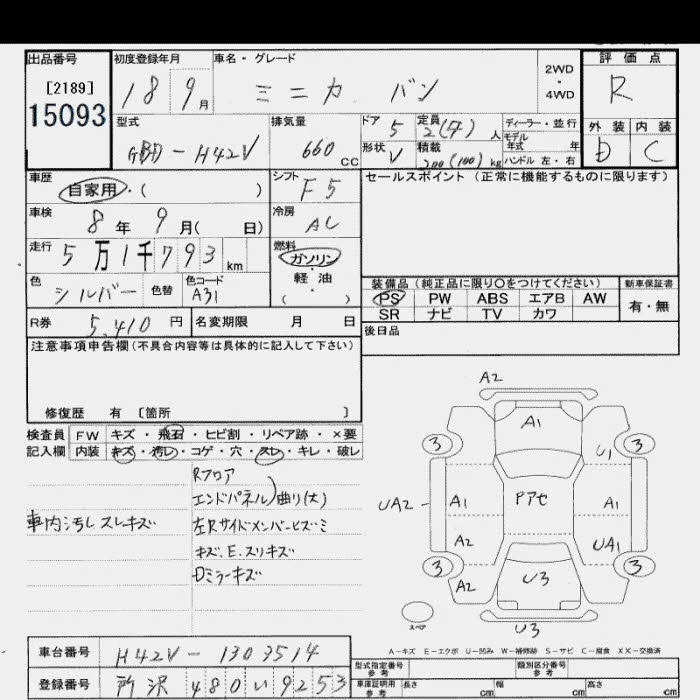 出品番号
[2189]
15093
初度登録年月
18 9月
車名・グレード
ミニカ バン
2WD
・
4WD
評価点
R
外装 内装
D C
型式
GBD-H42V
排気量
660 CC
ドア 5
形状 V
定員 2(4) 人
積載 200(100) kg
ディーラー・並行
モデル年式 年
ハンドル 左・右
車歴
自家用・( )
シフト F5
セールスポイント (正常に機能するものに限ります)
車検
8年 9月( 日)
冷房 AC
走行 5万1千793 km
燃料
ガソリン
・
軽油
( )
色 シルバー 色替
色コード A31
装備品 (純正品に限り〇をつけてください)
新車保証書
PS PW ABS エアB AW
有・無
SR ナビ TV カワ
R券 5,410 円
名変期限 月 日
後日品
注意事項申告欄(不具合内容等は具体的に記入して下さい)
修復歴 有 [箇所 ]
検査員 FW キズ・飛石・ヒビ割・リペア跡・×要
記入欄 内装 キズ・汚レ・コゲ・穴・スレ・キレ・破レ
Rフロア
エンドパネル)曲り(大)
車内汚レ スレキズ
左Rサイドメンバーヒズミ
キズ、E、スリキズ
Dミラーキズ
A2
A1
3 3
U1
UA2
A1 Pアセ A1
A2 UA1
3 3
A2 U3
スペア
U3
A-キズ E-エクボ U-凹み W-補修跡 S-サビ C-腐食 XX-交換済
車台番号 H42V-1303514
登録番号 所沢 480 い 9253
型式指定番号 参考
類別区分番号 参考
車庫証明用 参考
長さ cm 幅 cm 高さ cm